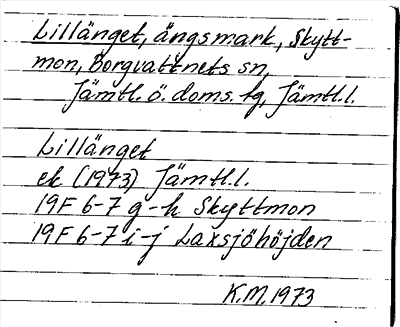 Lillänget, ängsmark, Skytt-
mon, Borgvattnets sn,
Jämtl. ö. doms. tg, Jämtl.l.
Lillänget
ek (1973) Jämtl.l.
19F 6-7 g-h Skyttmon
19F 6-7 i-j Laxsjöhöjden
K.M. 1973